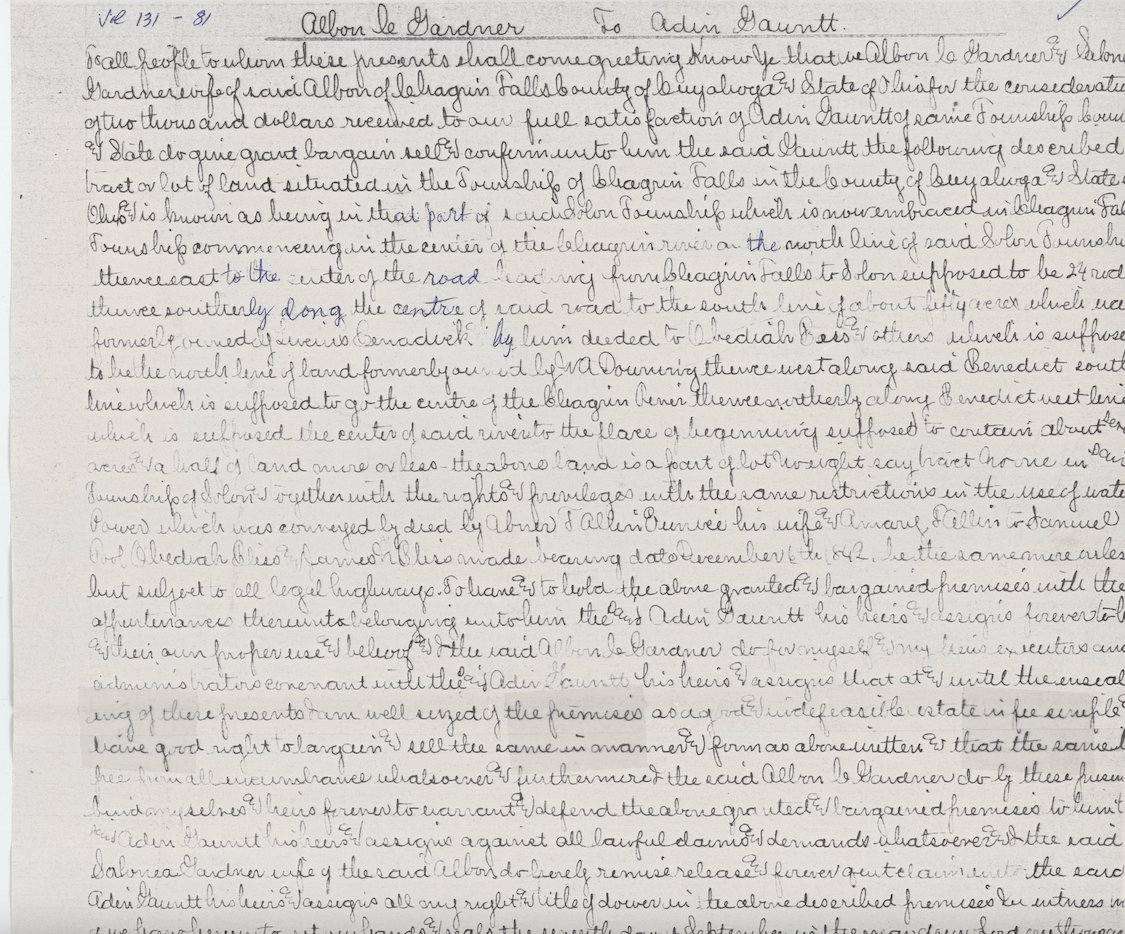 Vol 131 - 81
Albon C Gardner To Adin Gauntt.
To all people to whom these presents shall come greeting Know Ye that we Albon C Gardner &
Gardner wife of said Albon of Chagrin Falls County of Cuyahoga & State of Ohio for the consideratio
of two thousand dollars received to our full satisfaction of Adin Gauntt of same Township Coun
& State do give grant bargain sell & confirm unto him the said Gauntt the following described
tract or lot of land situated in the Township of Chagrin Falls in the County of Cuyahoga & State
Ohio & is known as being in that part of said Solon Township which is now embraced in Chagrin Fal
Township commencing in the center of the Chagrin river on the north line of said Solon Townsh
thence east to the center of the road leading from Chagrin Falls to Solon supposed to be 24 rod
thence southerly along the centre of said road to the south line of about fifty acres which was
formerly owned by & by him deeded to Obediah Bliss & others which is suppose
to be the north line of land formerly owned by A Downing thence west along said Benedict south
line which is supposed to go the centre of the Chagrin River thence northerly along Benedict west line
which is supposed the center of said river to the place of beginning supposed to contain about ten
acres & a half of land more or less the above land is a part of lot No eight say tract No one in said
Township of Solon & together with the rights & privileges with the same restrictions in the use of wate
Power which was conveyed by deed by Abner & his wife & to Samuel
Pool Obediah Bliss & James Bliss made bearing date December 6th 1842. be the same more or less
but subject to all legal highways. To have & to hold the above granted & bargained premises with the
appurtenances thereunto belonging unto him the said Adin Gauntt his heirs & assigns forever to
& their own proper use & behoof & I the said Albon C Gardner do for myself & my heirs executors and
administrators covenant with the said Adin Gauntt his heirs & assigns that at & until the enseal
ing of these presents I am well seized of the premises as a good & indefeasible estate in fee simple &
have good right to bargain & sell the same in manner & form as above written & that the same
free from all incumbrance whatsoever & furthermore I the said Albon C Gardner do by these presen
bind my selves & heirs forever to warrant & defend the above granted & bargained premises to him
said Adin Gauntt his heirs & assigns against all lawful claims & demands whatsoever & I the said
Salonea Gardner wife of the said Albon do hereby remise release & forever quit claim unto the said
Adin Gauntt his heirs & assigns all my right & title of dower in the above described premises In witness
we have hereunto set our hands & seals the seventh day of September in the year of our Lord one thousan